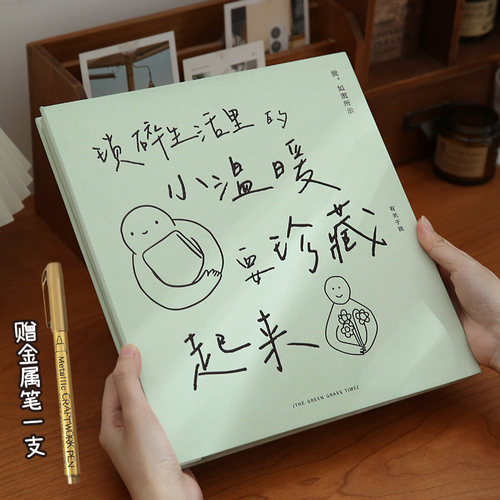 我，如图所示
琐碎生活里的
小温暖
要珍藏
起来
有关于我
/THE GREEN GRASS TIME/
赠金属笔一支
Metallic CRAFTWORK PEN